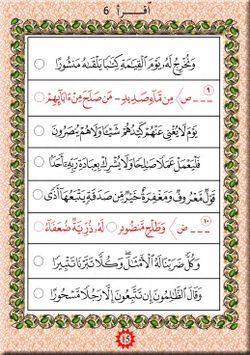 أقـرأ 6
وَنُخْرِجُ لَهُۥ يَوْمَ ٱلْقِيَـٰمَةِ كِتَـٰبًا يَلْقَىٰهُ مَنشُورًا
٩ ــ ص / مِن مَّآءٍ صَدِيدٍ - مَن صَلَحَ مِنْ ءَابَآئِهِمْ
يَوْمَ لَا يُغْنِى عَنْهُمْ كَيْدُهُمْ شَيْـًٔا وَلَا هُمْ يُنصَرُونَ
فَلْيَعْمَلْ عَمَلًا صَـٰلِحًا وَلَا يُشْرِكْ بِعِبَادَةِ رَبِّهِۦٓ أَحَدًۢا
قَوْلٌ مَّعْرُوفٌ وَمَغْفِرَةٌ خَيْرٌ مِّن صَدَقَةٍ يَتْبَعُهَآ أَذًى
١٠ ــ ض / وَطَلْحٍ مَّنضُودٍ لَهُۥ ذُرِّيَّةٌ ضُعَفَآءُ
وَكُلًّا ضَرَبْنَا لَهُ ٱلْأَمْثَـٰلَ وَكُلًّا تَبَّرْنَا تَتْبِيرًا
وَقَالَ ٱلظَّـٰلِمُونَ إِن تَتَّبِعُونَ إِلَّا رَجُلًا مَّسْحُورًا
15